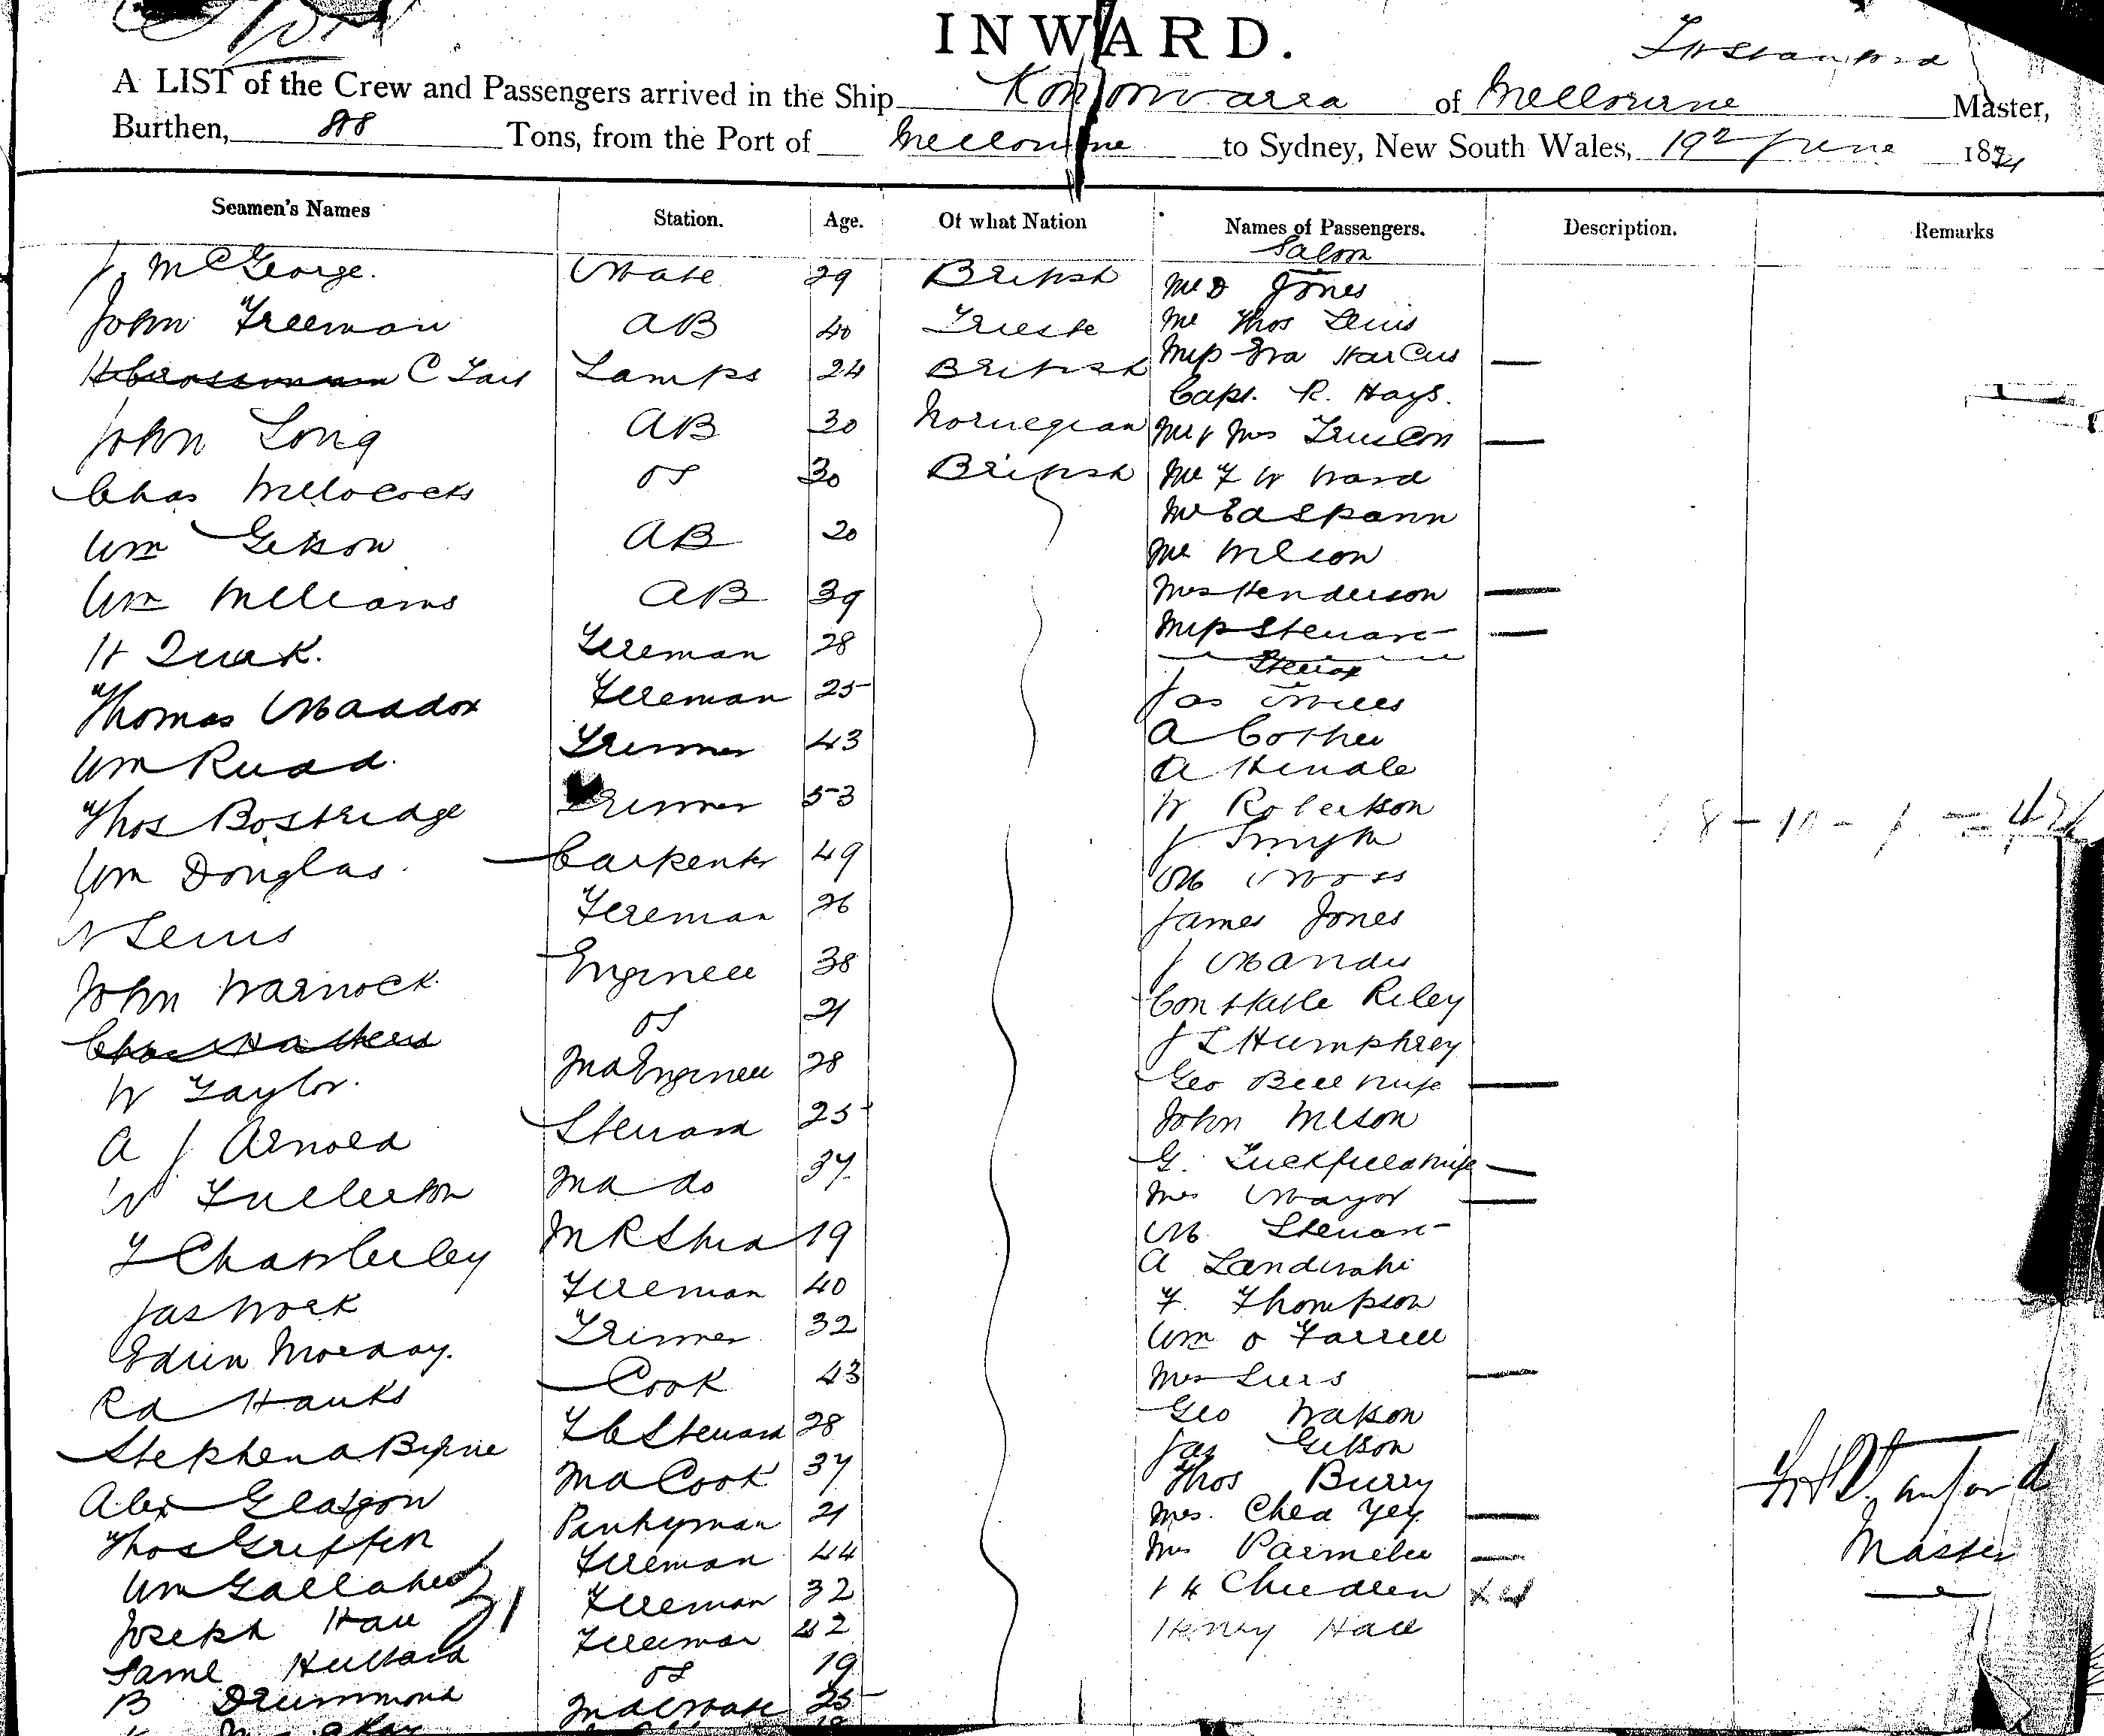 INWARD.
A LIST of the Crew and Passengers arrived in the Ship Konoowarra of Melbourne Master,
Burthen, Tons, from the Port of Melbourne to Sydney, New South Wales, 19th June 18
Seamen's Names Station. Age. Of what Nation Names of Passengers. Description. Remarks
Saloon
J. McGeorge. Mate 29 British Mr D Jones
John Freeman AB 40 Trieste Mr Thos Lewis
C Tait Lamps 24 British Miss Eva Harcus —
Capt. R. Hays.
John Long AB 30 Norwegian Mr & Mrs Truscon —
Chas Willcocks OS 30 British Mr F W Ward
Mr Ed Spann
Wm Gibson AB 20 Mr Wilson
Wm Williams AB 39 Mrs Henderson —
H Quirk. Fireman 28 Miss Stewart —
Steerage
Thomas Maddox Fireman 25 Jas Mills
Wm Rudd. Trimmer 43 A Cother
A Hindle
Thos Bostridge Trimmer 53 W Robertson
J Smyth
Wm Douglas. Carpenter 49 M Moss
N Lewis Fireman 26 James Jones
John Warnock. Engineer 38 J Mander
OS 21 Constable Riley
J L Humphrey
W Taylor. 2nd Engineer 28 Geo Bell & wife —
A J Arnold Steward 25 John Wilson
W Fullerton 2nd do 37 G. Tuckfield & wife —
Mrs Mayor —
F Chamberley M R Stwd 19 M Stewart
A Landerahi
Jas Work Fireman 40 F. Thompson
Edwin Morday. Trimmer 32 Wm O Farrell
Rd Hanks Cook 43 Mrs Lewis —
Stephen A Byrne F C Steward 28 Geo Watson
Jas Gibson
Alex Glasgow 2nd Cook 37 Thos Burry
Thos Griffith Pantryman 21 Mrs. Chea Yey —
Wm Gallaher Fireman 44 Mrs Parmelee —
Joseph Hall Fireman 32 & 4 Children x4
Saml Hubbard Fireman 42 Henry Hall
OS 19
B Drummond 2nd Mate 25
Stanford
Master